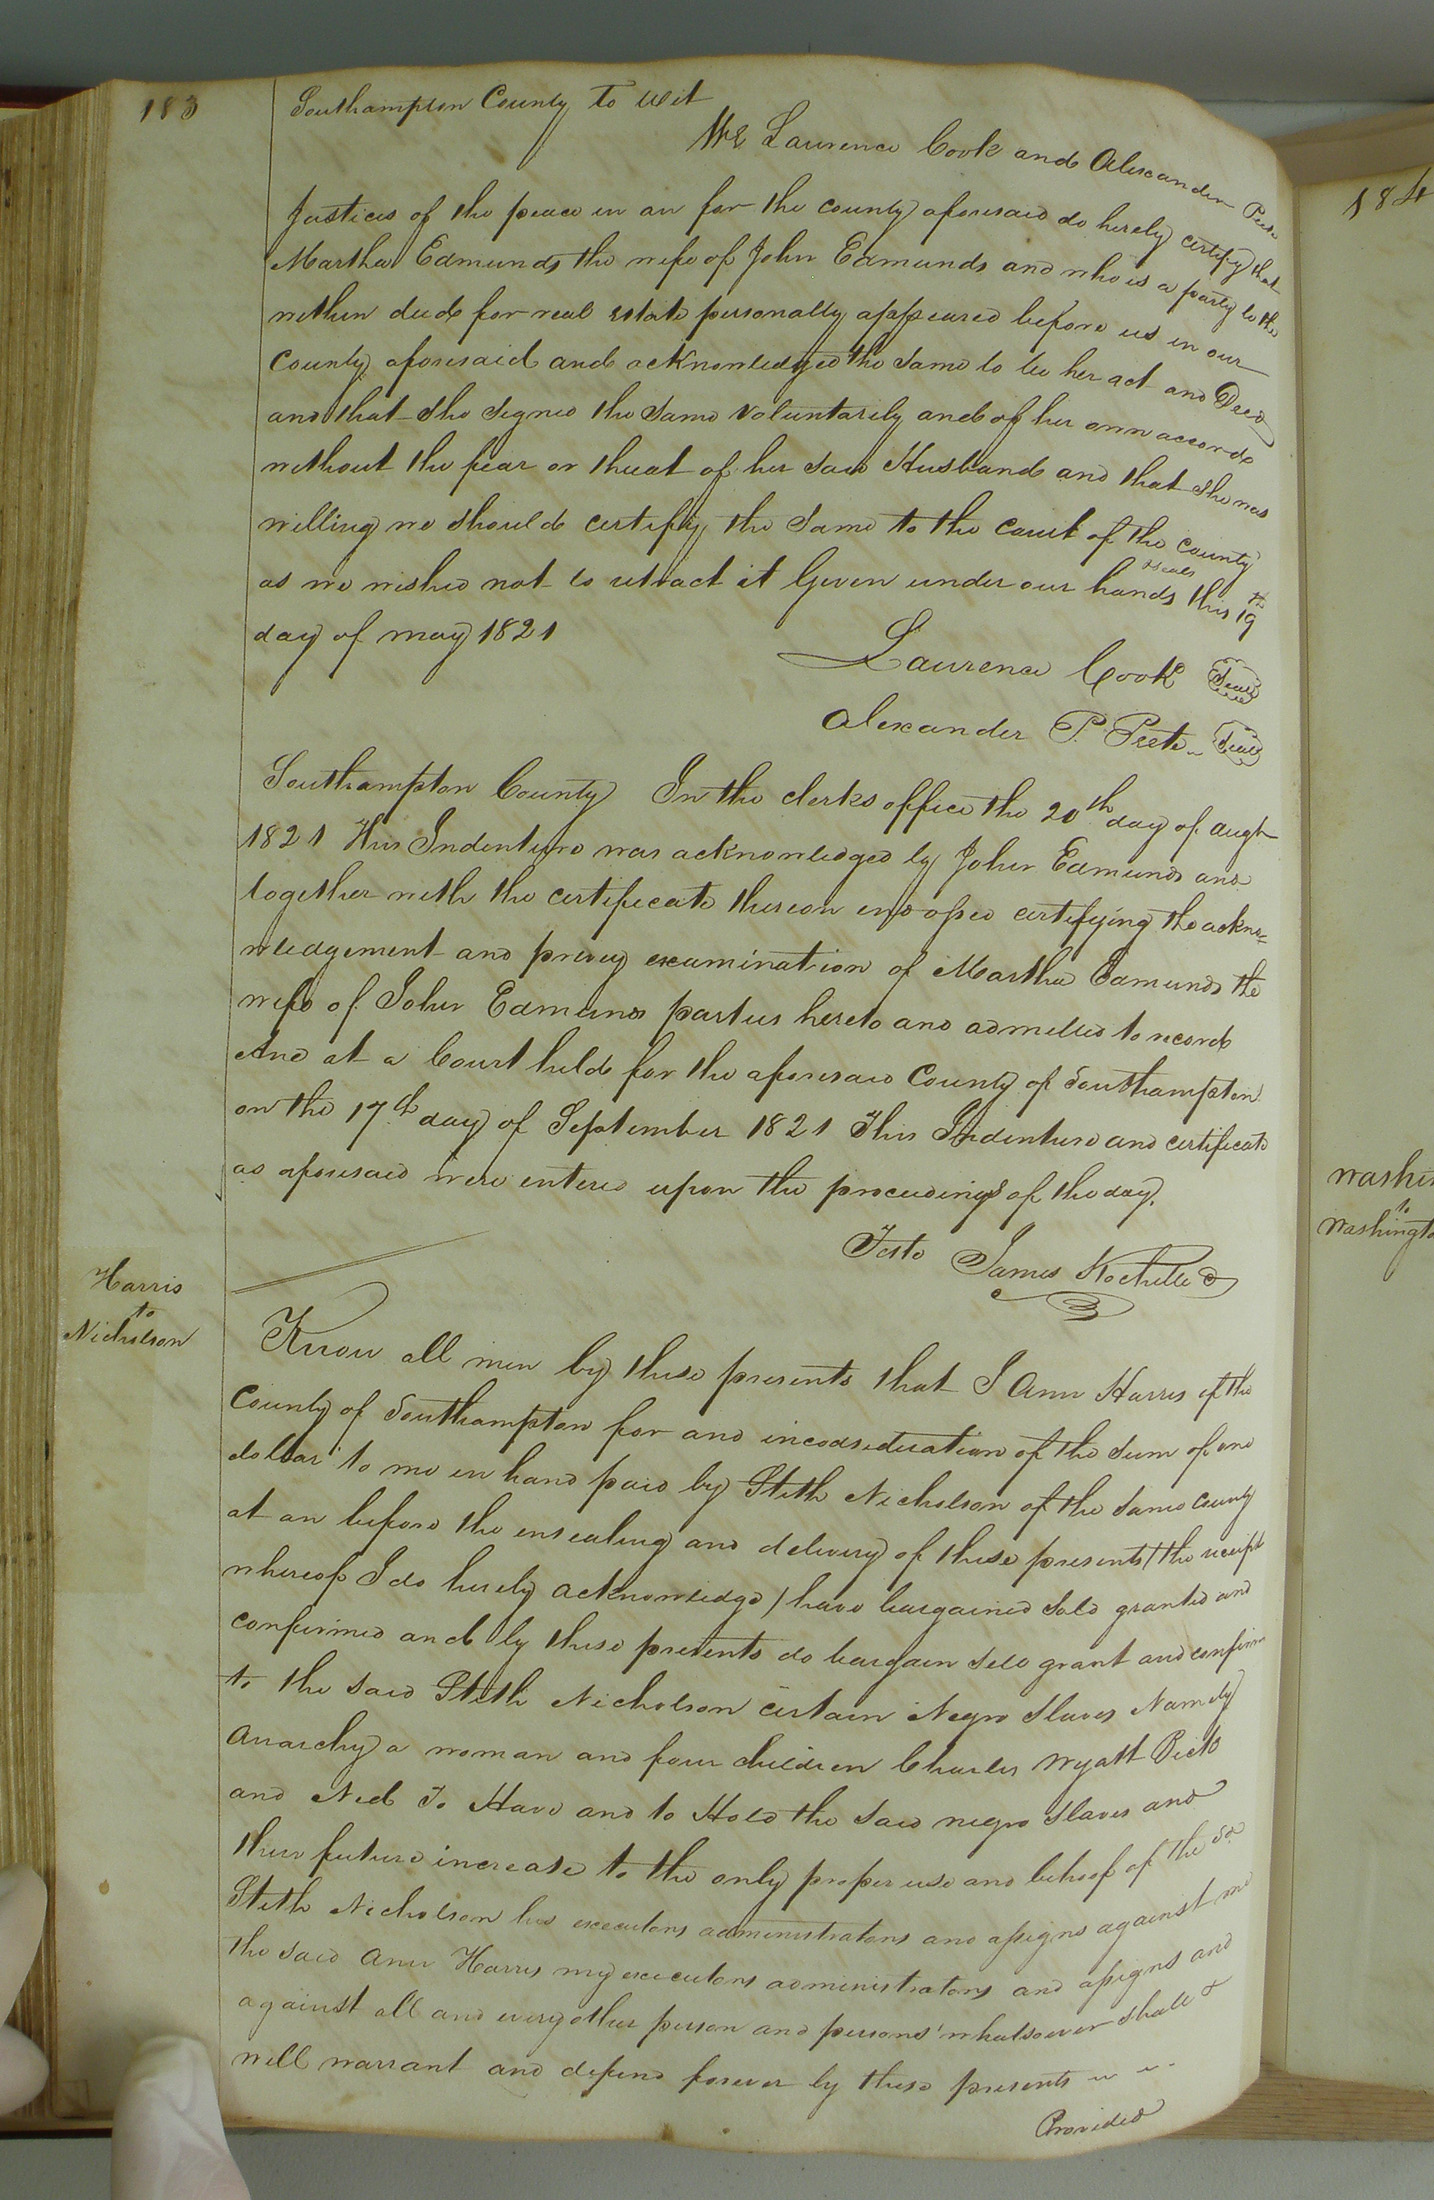 183
Southampton County To Wit
We Laurence Cook and Alexander Peete
Justices of the peace in an for the county aforesaid do hereby certify that
Martha Edmunds the wife of John Edmunds and who is a party to the
within deed for real estate personally appeared before us in our
County aforesaid and acknowledged the same to be her act and Deed
and that she signed the same voluntarily and of her own accord
without the fear or threat of her said Husband and that she was
willing we should certify the same to the court of the county
as we wished not to retract it Given under our hands & seals this 19th
day of may 1821
Laurence Cook Seal
Alexander P. Peete Seal
Southampton County In the clerks office the 20th day of Augt
1821 This Indenture was acknowledged by John Edmunds and
together with the certificate thereon endopsed certifying the ackno=
wledgement and privey examination of Martha Edmunds the
wife of John Edmunds parties hereto and admitted to record
And at a Court held for the aforesaid County of Southampton
on the 17th day of September 1821 This Indenture and certificate
as aforesaid were entered upon the proceedings of the day.
Teste James Rochelle C
Harris
to
Nicholson
Know all men by these presents that I Ann Harris of the
County of Southampton for and in consideration of the sum of one
dollar to me in hand paid by Stith Nicholson of the same county
at an before the ensealing and delivery of these presents (the receipt
whereof I do hereby acknowledge) have bargained sold granted and
confirmed and by these presents do bargain sell grant and confirm
to the said Stith Nicholson certain Negro slaves Namely
Anarchy a woman and four children Charles Wyatt Dick
and Ned To Have and to Hold the said negro slaves and
their future increase to the only proper use and behoof of the sd
Stith Nicholson his executors administrators and assigns against me
the said Ann Harris my executors administrators and assigns and
against all and every other person and persons whatsoever shall &
will warrant and defend forever by these presents
Provided
184
to